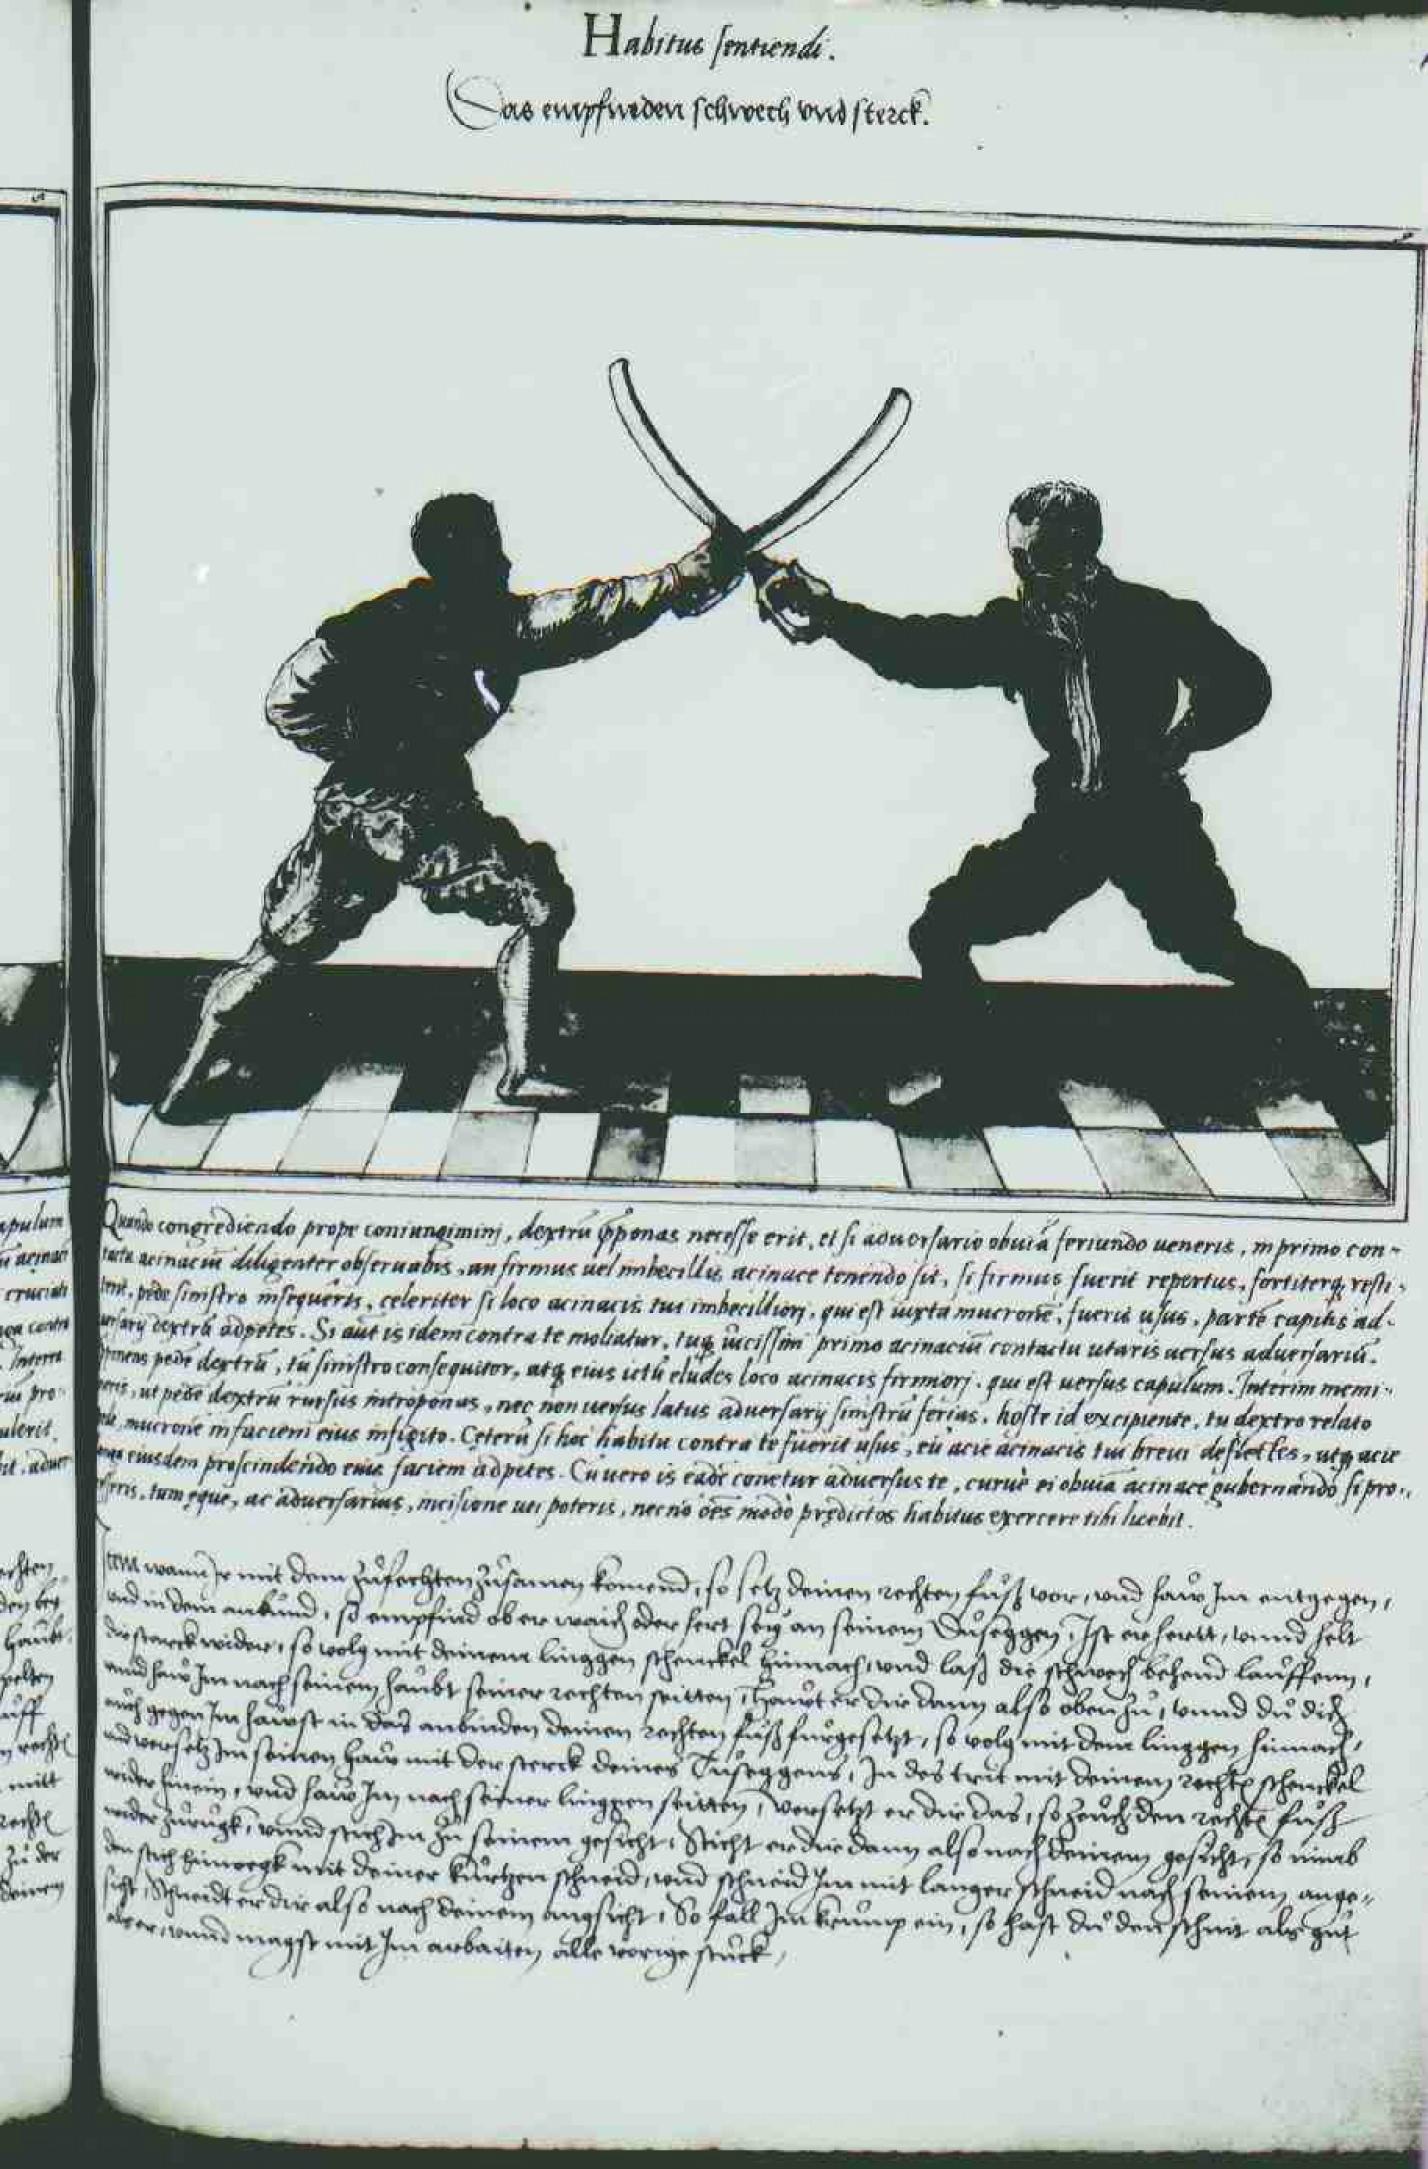 Habitus sentiendi.
Das empfinden schwech vnd sterck.
Quando congrediendo prope coniungimini, dextrũ p̃ponas necesse erit, et si aduersario obuiã feriundo ueneris, in primo con-
tactu acinaciũ diligenter obseruabis, an firmus uel imbecillis acinace tenendo sit, si firmus fuerit repertus, fortiterq̃ resti-
terit, pede sinistro insequeris, celeriter si loco acinacis tui imbecilliori, qui est iuxta mucronẽ, fueris usus, partẽ capitis ad-
uersarij dextrã adpetes. Si aũt is idem contra te moliatur, tuq̃ uicissim primo acinaciũ contactu utaris uersus aduersariũ,
p̃ponens pedẽ dextrũ, tũ sinistro consequitor, atq̃ eius ictũ eludes loco acinacis firmiori, qui est uersus capulum. Interim memi-
neris, ut pedẽ dextrũ rursus introponas, nec non uersus latus aduersarij sinistrũ ferias, hoste id excipiente, tu dextro relato
mucrone in faciem eius infigito. Ceterũ si hoc habitu contra te fuerit usus, eũ acie acinacis tui breui deflectes, utq̃ acie
eiusdem proscindendo eius faciem adpetes. Cũ uero is eadẽ conetur aduersus te, curuẽ ei obuiã acinacẽ gubernando si pro-
tum ęque, ac aduersarius, incisione uti poteris, nec nõ oẽs modo prędictos habitus exercere tibi licebit.
Item wann Ir mit dem zůfechten zůsamen komend, so setz deinen rechten fůß vor, vnd haw Im entgegen,
vnd in dem anbund, so empfind ob er waich oder hert sey an seinem Duseggen, Ist er hertt, vnnd helt
dir starck wider, so volg mit deinem linggen schenckel hinnach, vnd laß die schwech behend lauffenn,
vnnd haw Im nach seinem haubt seiner rechten seitten, Hawt er dir dann also oben zů, vnnd dů dich
auch gegen Im hawst in das anbinden deinem rechten fůß fürgesetzt, so volg mit dem linggen hinnach,
vnd versetz Im seinen haw mit der sterck deines Duseggens, In des trit mit deinem rechtẽ schenckel
wider hinein, vnd haw Im nach seiner linggen seitten, versetzt er dir das, so zeuch den rechtẽ fůß
wider zůrugk, vnnd stich Im zů seinem gesicht, Sticht er dir dann also nach deinem gesicht, so nimb
den stich hinwegk mit deiner kurtzen schneid, vnd schneid Im mit langer schneid nach seinem ange-
sicht, Schneidt er dir also nach deinem angsicht, So fall Im krump ein, so hast dů den schnit als gůt
als er, vnnd magst mit Im arbaiten alle vorige stuck,